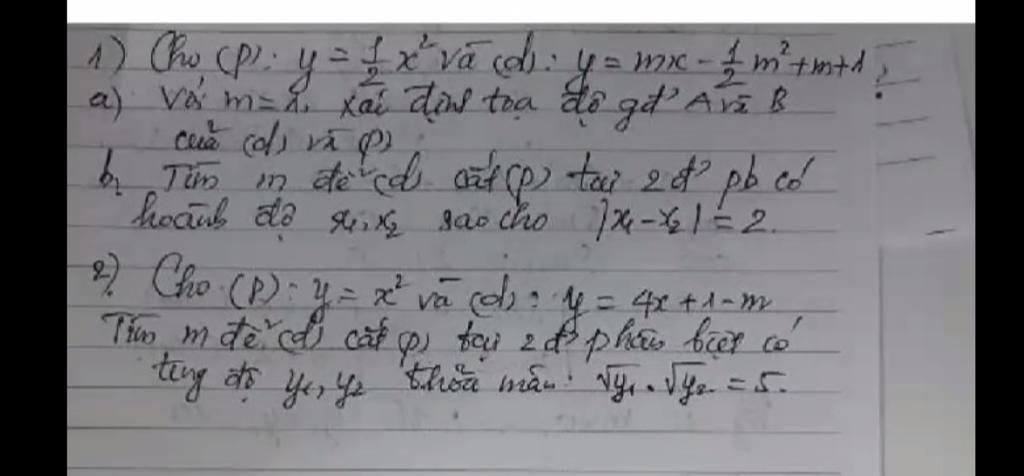 1) Cho (P): y = 1/2 x² và (d): y = mx - 1/2 m² + m + 1
a) Với m = 1, xác định tọa độ gđ' A và B
của (d) và (P)
b, Tìm m để (d) cắt (P) tại 2 đ' pb có
hoành độ x₁, x₂ sao cho |x₁ - x₂| = 2.
2) Cho (P): y = x² và (d): y = 4x + 1 - m
Tìm m để (d) cắt (P) tại 2 đ' phân biệt có
tung độ y₁, y₂ thỏa mãn: √y₁ . √y₂ = 5.